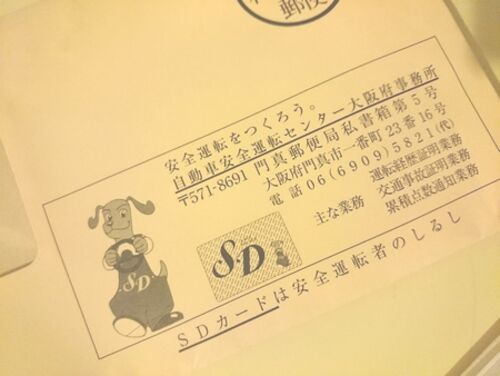 郵便
安全運転をつくろう。
自動車安全運転センター大阪府事務所
〒571-8691 門真郵便局私書箱第5号
大阪府門真市一番町23番16号
電話06(6909)5821(代)
主な業務 運転経歴証明業務
交通事故証明業務
累積点数通知業務
SD
SD
SDカードは安全運転者のしるし